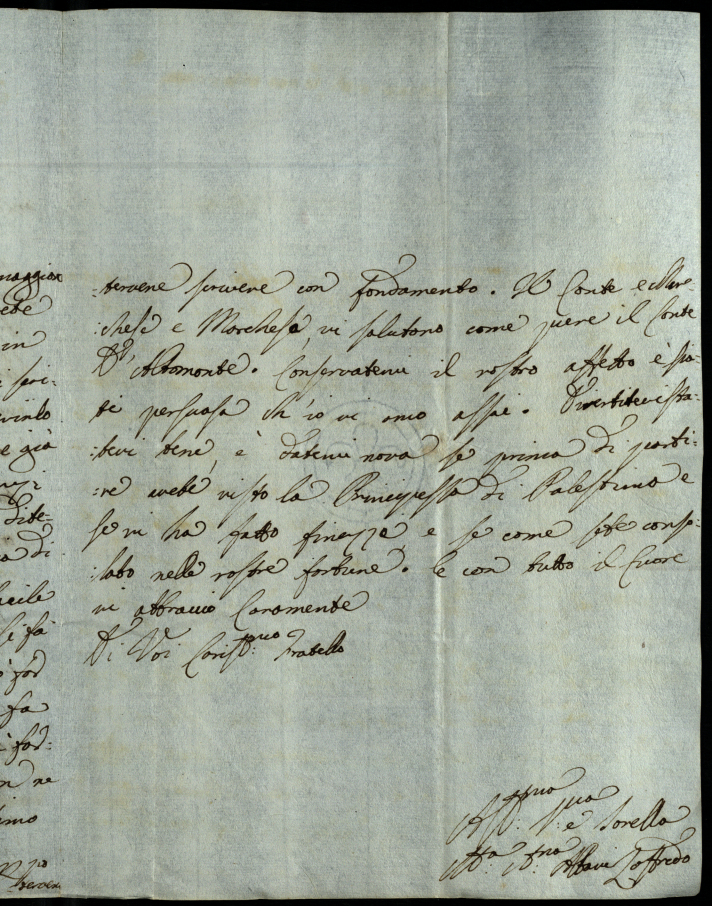 maggior
in
scri:
e già
Dite=
a di
acile
si fà
fa
n ne
imo
:tervene scrivere con fondamento. Il Conte e Mar:
:chese e Marchesa, vi salutono come pure il Conte
D'Altamonte. Conservatemi il vostro affetto è sia:
te persuaso ch'io vi amo assai. Divertitevi sta:
:tevi bene, è datemi nova se prima di parti:
:re avete visto la Principessa di Palestrina e
se vi ha fatto finezze e se come sete conso:
:lato nelle vostre fortune. E con tutto il Cuore
vi abbraccio Caramente
Di Voi Cariss:mo Fratello
Aff:ma S:va e Sorella
Albani Loffredo